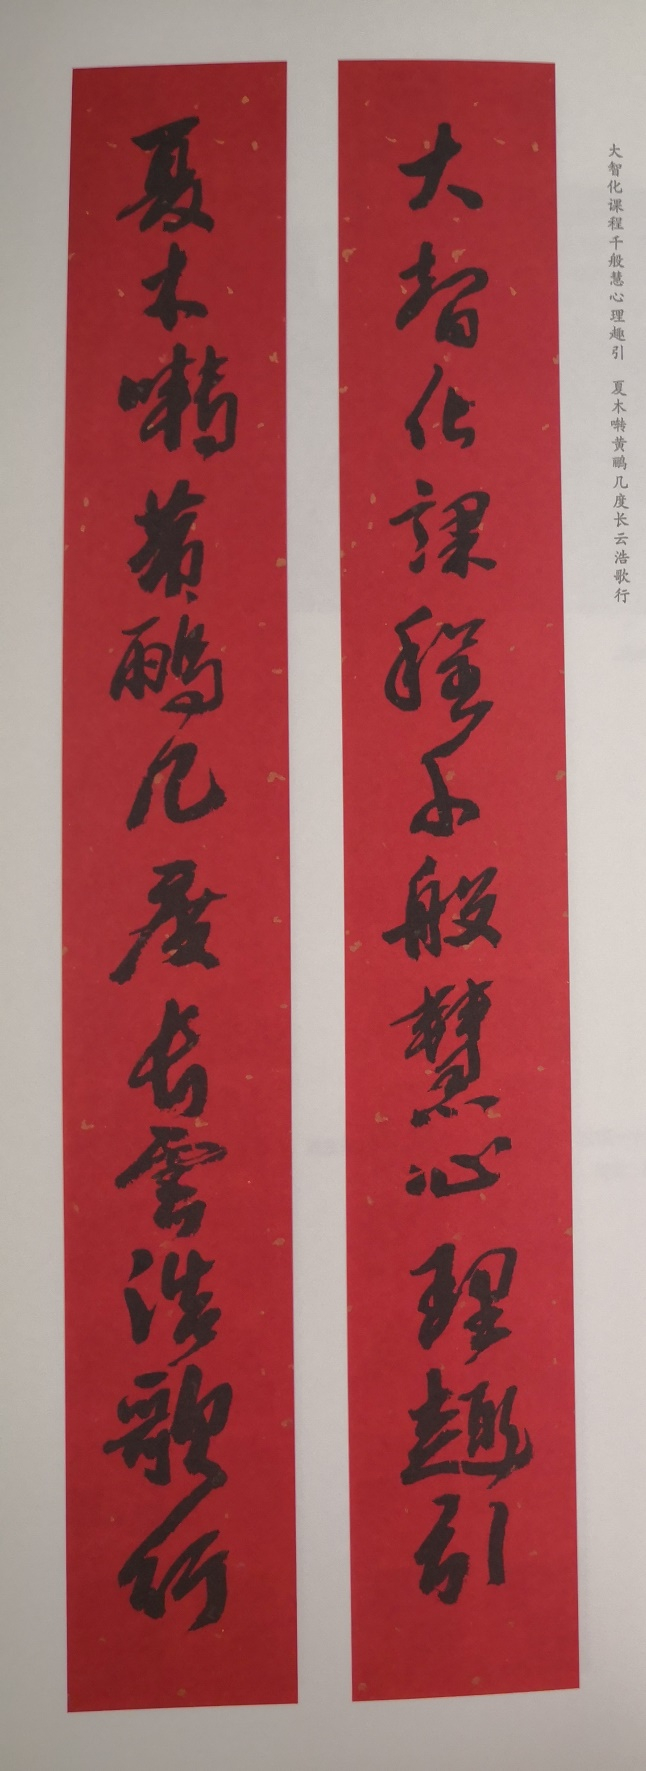 大智化课程千般慧心理趣引 夏木啭黄鹂几度长云浩歌行
大智化課程千般慧心理趣引
夏木囀黄鸝几度长雲浩歌行